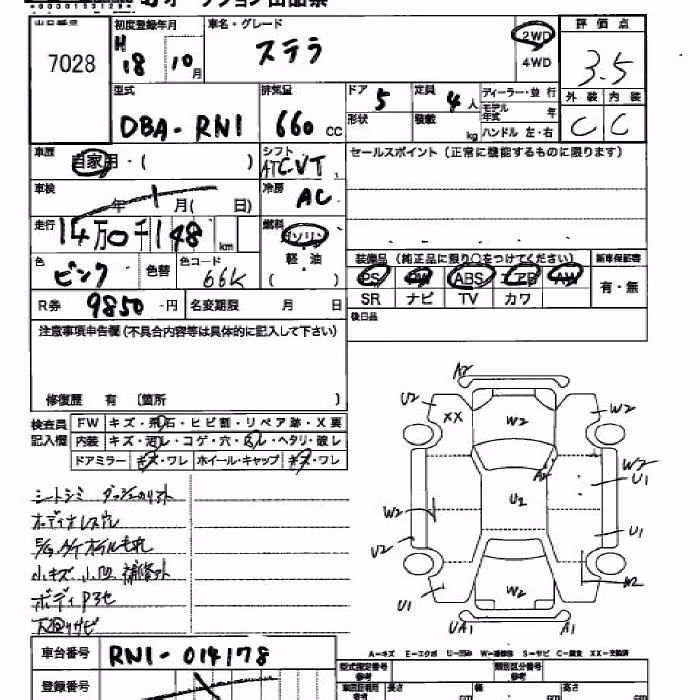 7028
初度登録年月
H 18 10月
車名・グレード
ステラ
2WD
4WD
評価点
3.5
外装 内装
C C
型式
DBA-RN1
排気量
660 cc
ドア
5
形状
定員
4人
積載
kg
ディーラー・並行
モデル年式 年
ハンドル 左・右
車歴
自家用・( )
シフト
ATCVT
セールスポイント(正常に機能するものに限ります)
車検
年 月( 日)
冷房
AC
走行
14万0千148 km
燃料
ガソリン
軽・油
( )
色
ピンク
色替
色コード
66K
装備品(純正品に限り○をつけてください)
新車保証書
PS PW ABS エアB AW
有・無
SR ナビ TV カワ
R券 9850-円
名変期限 月 日
後日品
注意事項申告欄(不具合内容等は具体的に記入して下さい)
修復歴 有 〔箇所 〕
検査員記入欄
FW キズ・飛石・ヒビ割・リペア跡・X要
内装 キズ・汚レ・コゲ・穴・スレ・ヘタリ・破レ
ドアミラー キズ・ワレ ホイール・キャップ キズ・ワレ
シートシミ
小キズ 小凹 補修跡
下廻りサビ
A2
U2 XX W2 W2
A2 W2 U1
U2
W2 U1
U2 W2
W2
U1 UA1 A1
A-キズ E-エクボ U-凹み W-補修跡 S-サビ C-腐食 XX-交換済
車台番号 RN1-014178
登録番号
型式指定番号
類別区分番号
長さ cm 幅 cm 高さ cm